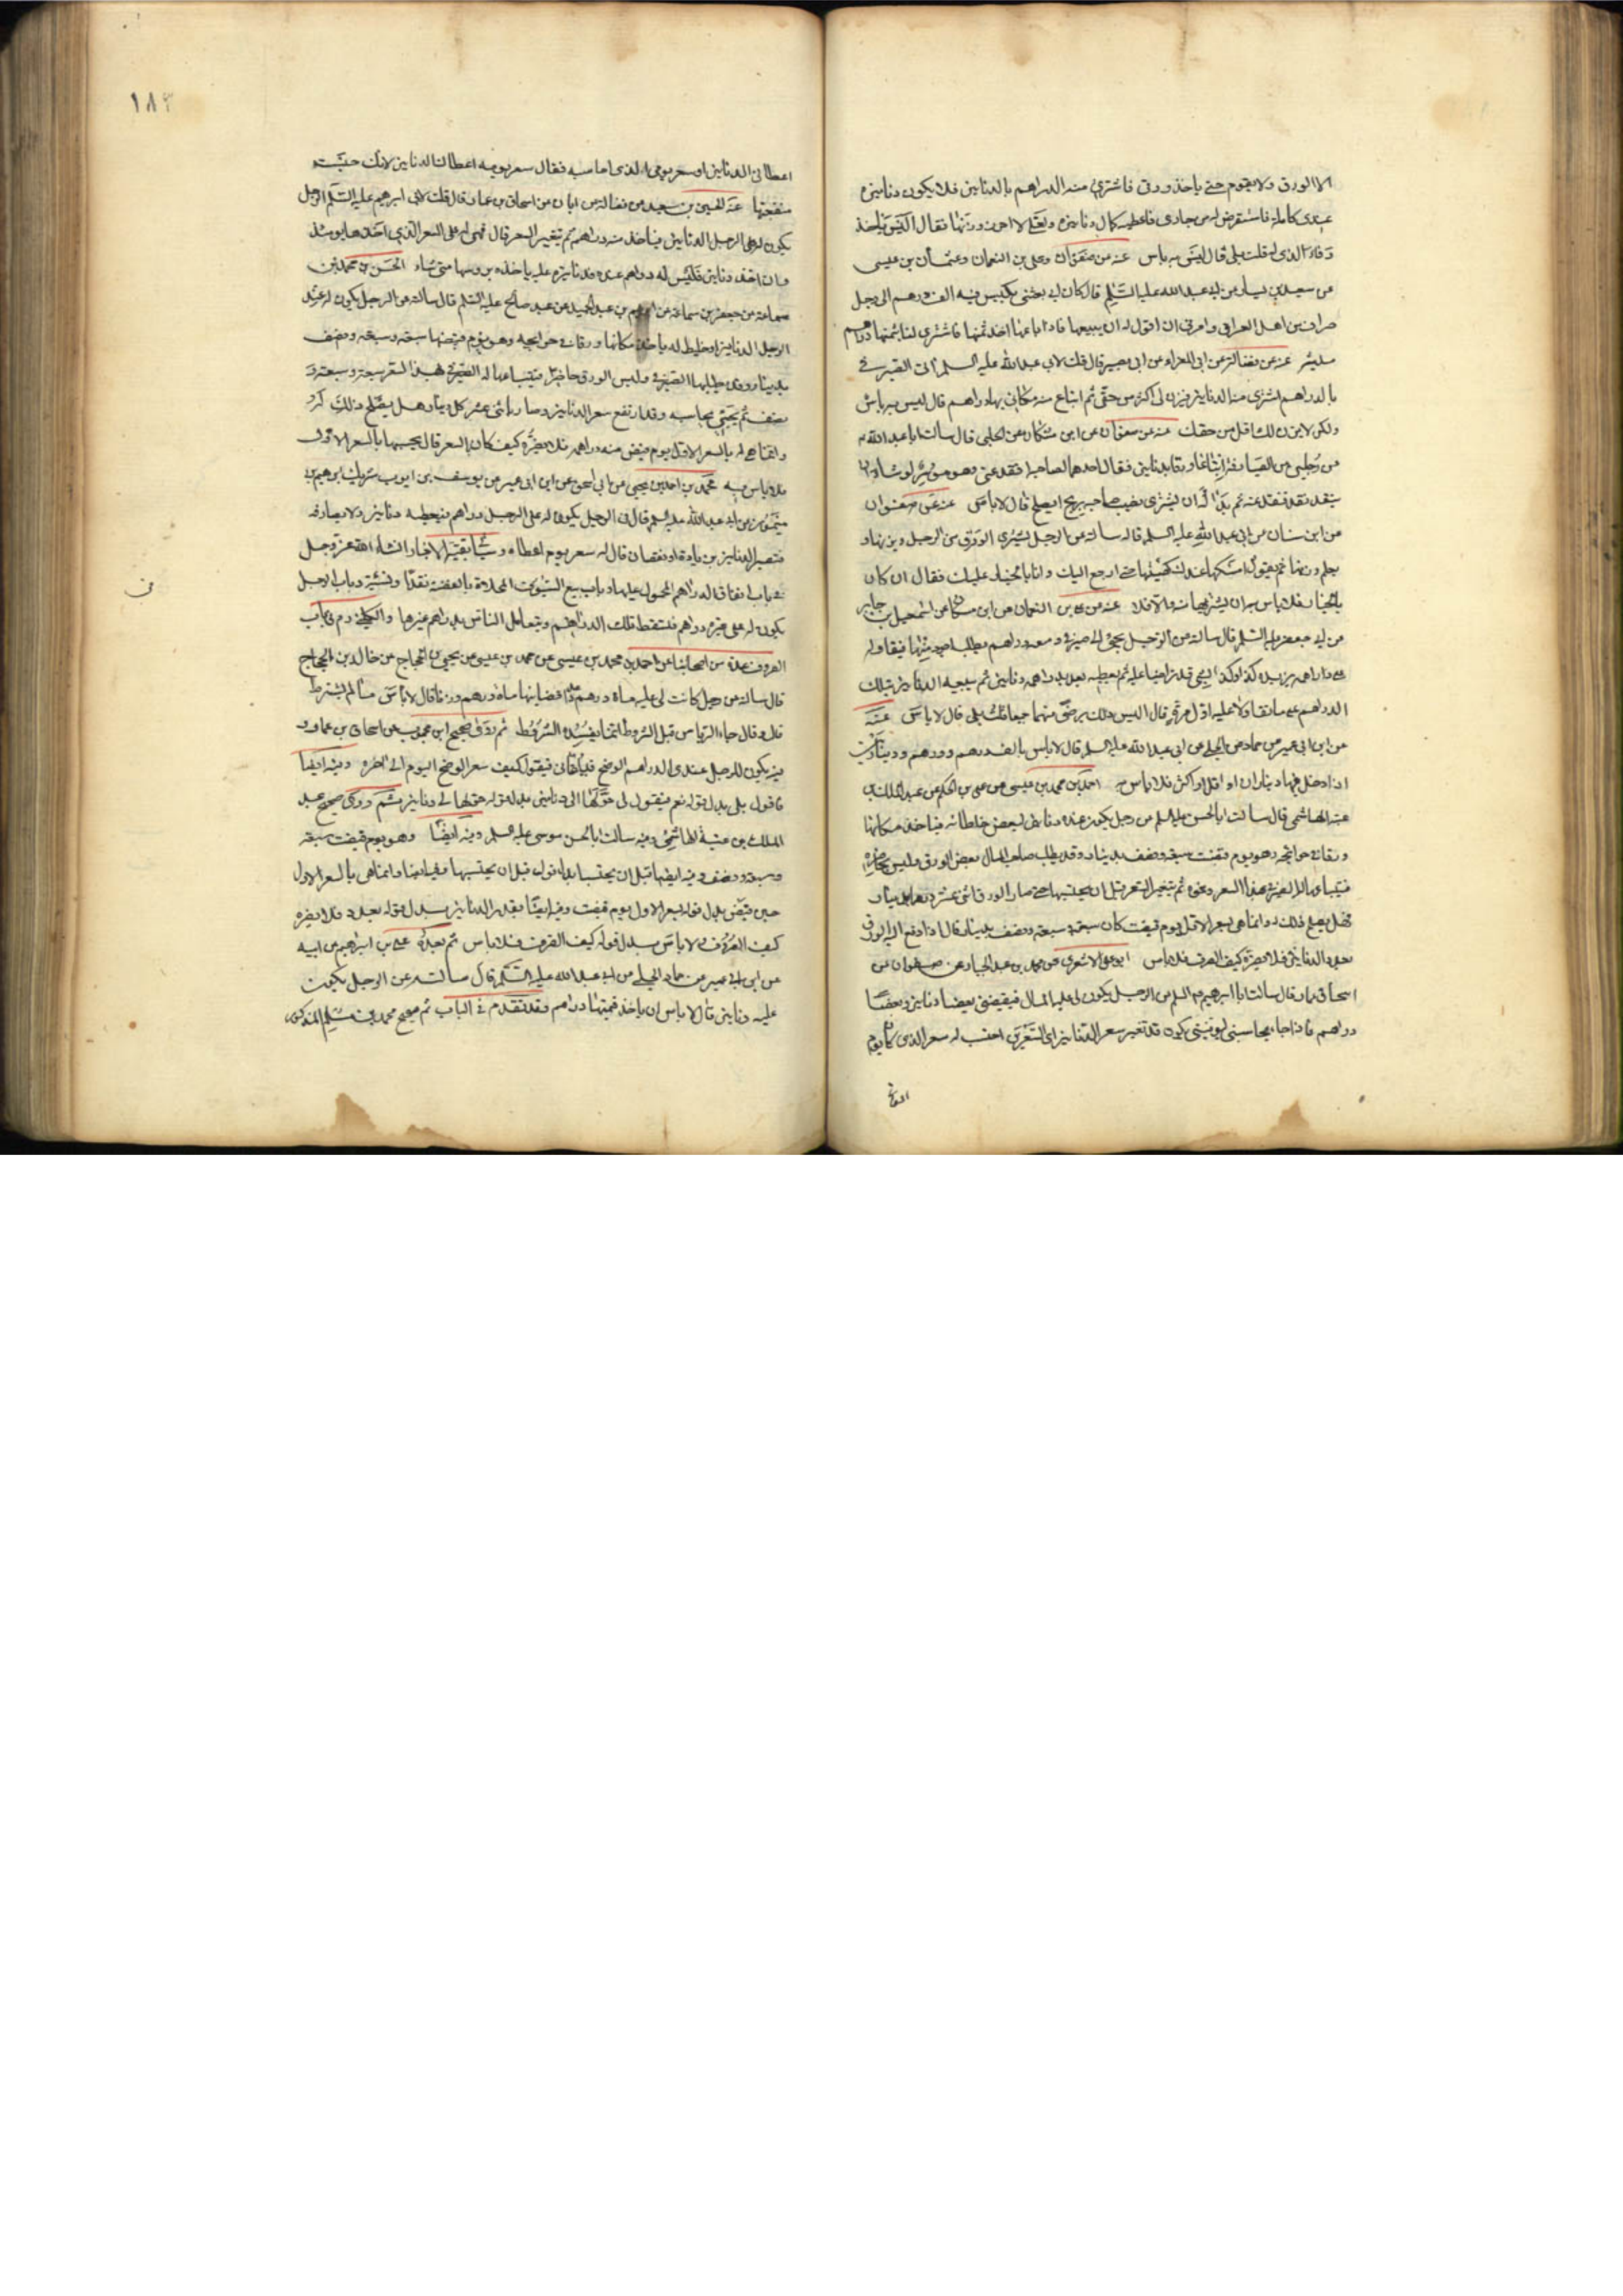 الا الورق ولا يقوم حتى ياخذ ورقى فاشترى منه الدراهم بالدنانير فلا يكون دنانيره
عندى كاملة فاستقرض له من جارى فاعطيه كمال دنانيره ولعلى لا احرز وزنها فقال اليس ياخذ
وفاء الذى له قلت بلى قال ليس به باس عنه عن صفوان وعلى بن النعمان وعثمان بن عيسى
عن سعيد بن يسار عن ابى عبد الله عليه السلم قال كان ابى بعثنى بكيس فيه الف درهم الى رجل
صراف من اهل العراق وامرنى ان اقول له ان يبيعها فاذا باعها اخذ ثمنها فاشترى لنا بثمنها دراهم
عنه عن فضالة عن ابى المغراء عن ابى بصير قال قلت لابى عبد الله عليه السلم اتى الصيرفى
بالدراهم اشترى منه الدنانير فيزن لى اكثر من حقى ثم ابتاع منه مكانى بها دراهم قال ليس به باس
ولكن لا يزن لك اقل من حقك عنه عن صفوان عن ابن مسكان عن الحلبى قال سالت ابا عبد الله ع
عن رجلين من الصيارفة ابتاعا ورقا بدنانير فقال احدهما لصاحبه انقد عنى وهو موسر لو شاء ان
ينقد نقد فنقد عنه ثم بدا له ان يشترى نصيب صاحبه بربح ايصلح قال لا باس عنه عن صفوان
عن ابن سنان عن ابى عبد الله عليه السلم قال سالته عن الرجل يشترى الورق من الرجل ويزنها و
يعلم وزنها ثم يقول امسكها عندك كهيئتها حتى ارجع اليك وانا بالخيار عليك فقال ان كان
بالخيار فلا باس به ان يشتريها منه والا فلا عنه عن على بن النعمان عن ابن مسكان عن اسمعيل بن جابر
عن ابى جعفر عليه السلم قال سالته عن الرجل يجئ الى صيرفى ومعه دراهم يطلب اجود منها فيقاوله
على دراهمه يزيده كذا وكذا بشئ قد تراضيا عليه ثم يعطيه بعد بدراهمه دنانير ثم يبيعه الدنانير بتلك
الدراهم على ما تقاولا عليه اول مرة قال اليس ذلك برضى منهما جميعا قلت بلى قال لا باس عنه
عن ابن ابى عمير عن حماد عن الحلبى عن ابى عبد الله عليه السلم قال لا باس بالف درهم ودرهم ودينارين
اذا دخل فيها ديناران او اقل او اكثر فلا باس به احمد بن محمد بن عيسى عن على بن الحكم عن عبد الملك بن
عتبة الهاشمى قال سالت ابا الحسن عليه السلم عن رجل يكون عنده دنانير لبعض خلطائه فياخذ مكانها
ورقا فى حوائجه وهو يوم قبضت سبعة ونصف بدينار وقد يطلب صاحب المال بعض الورق وليس بحاضرة
فيبتاعها له الصيرفى بهذا السعر ونحوه ثم يتغير السعر قبل ان يحتسبها حتى صار الورق اثنى عشر درهما بدينار
فهل يصلح ذلك له وانما هى بالسعر الاول يوم قبضت كان سبعة وسبعة ونصف بدينار قال اذا دفع اليه الورق
بقدر الدنانير فلا يضره كيف الصرف فلا باس ابو على الاشعرى عن محمد بن عبد الجبار عن صفوان عن
اسحاق بن عمار قال سالت ابا ابرهيم عليه السلم عن الرجل يكون لى عليه المال فيقبضنى بعضا دنانير وبعضا
دراهم فاذا جاء يحاسبنى ليوفينى يكون قد تغير سعر الدنانير اى السعرين احسب له سعر الذى كان يوم
اعطانى الدنانير او سعر يومى الذى احاسبه فقال سعر يوم اعطاك الدنانير لانك حبست
منفعتها عنه الحسين بن سعيد عن فضالة عن ابان عن اسحاق بن عمار قال قلت لابى ابرهيم عليه السلم الرجل
يكون له على الرجل الدنانير فياخذ منه دراهم ثم يتغير السعر قال فهى له على السعر الذى اخذها يومئذ
وان اخذ دنانير فليس له دراهم عنده فدنانيره عليه ياخذه برؤسها متى شاء الحسن بن محمد بن
سماعة عن جعفر بن سماعة عن ابرهيم بن عبد الحميد عن عبد صالح عليه السلم قال سالته عن الرجل يكون له عند
الرجل الدنانير او خليط له ياخذ مكانها ورقا فى حوائجه وهو يوم قبضها سبعة وسبعة ونصف
بدينار وقد يطلبها الصيرفى وليس الورق حاضرا فيبتاعها له الصيرفى بهذا السعر سبعة وسبعة و
نصف ثم يجئ يحاسبه وقد ارتفع سعر الدنانير وصار باثنى عشر كل دينار هل يصلح ذلك له و
وانما هى له بالسعر الاول يوم قبض منه دراهمه فلا يضره كيف كان السعر قال يحسبها بالسعر الاول
فلا باس به محمد بن احمد بن يحيى عن ابى اسحق عن ابن ابى عمير عن يوسف بن ايوب شريك ابرهيم بن
ميمون عن ابى عبد الله عليه السلم قال فى الرجل يكون له على الرجل دراهم فيعطيه دنانير ولا يصارفه
فتصير الدنانير بزيادة او نقصان قال له سعر يوم اعطاه وسياتى بقية الاخبار انشاء الله عز وجل
فى باب انفاق الدراهم المحمول عليها وباب بيع السيوف المحلاة بالفضة نقدا ونسية وباب الرجل
يكون له على غيره دراهم فتسقط تلك الدراهم ويتعامل الناس بدراهم غيرها
عدة من اصحابنا عن احمد بن محمد بن عيسى عن محمد بن عيسى عن يحيى بن الحجاج عن خالد بن الحجاج
قال سالته عن رجل كانت لى عليه ماة درهم عددا قضانيها ماة درهم وزنا قال لا باس ما لم يشترط
قال وقال جاء الربا من قبل الشروط انما يفسده الشروط ثم روى صحيح ابن محبوب عن اسحاق بن عمار و
فيه يكون للرجل عندى الدراهم الوضح فيلقانى فيقول كيف سعر الوضح اليوم الى اخره وفيه ايضا
فاقول بلى بدل قوله نعم فيقول لى حولها الى دنانير بدل قوله حولها لى دنانير ثم روى صحيح عبد
الملك بن عتبة الهاشمى وفيه سالت ابا الحسن موسى عليه السلم وفيه ايضا وهو يوم قبضت سبعة
وسبعة ونصف وفيه ايضا قبل ان يحتسب بدل قوله قبل ان يحتسبها وفيه ايضا وانما هى بالسعر الاول
حين قبض بدل قوله بسعر الاول يوم قبضت وفيه ايضا بقدر الدنانير بدل قوله بعدد فلا يضره
كيف الصروف ولا باس بدل قوله كيف الصرف فلا باس ثم بعده على بن ابراهيم عن ابيه
عن ابن ابى عمير عن حماد عن الحلبى عن ابى عبد الله عليه السلم قال سالته عن الرجل يكون
عليه دنانير قال لا باس ان ياخذ قيمتها دراهم وقد تقدم فى الباب ثم صحيح محمد بن مسلم المذكور